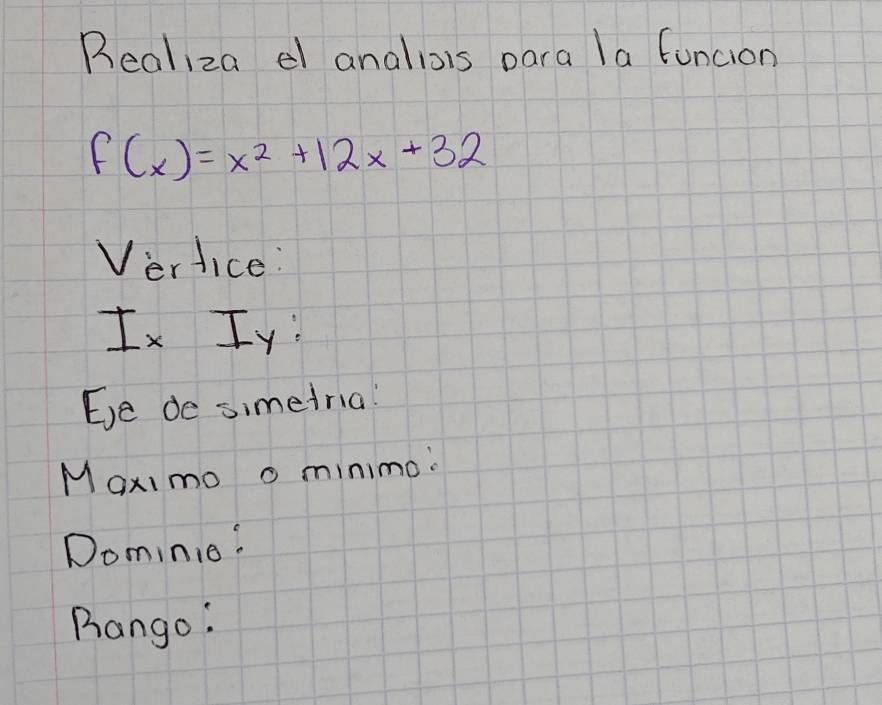 Realiza el analisis para la funcion
f(x)= x² +12x +32
Vértice:
Ix Iy:
Eje de simetria:
Maximo o minimo:
Dominio:
Rango: